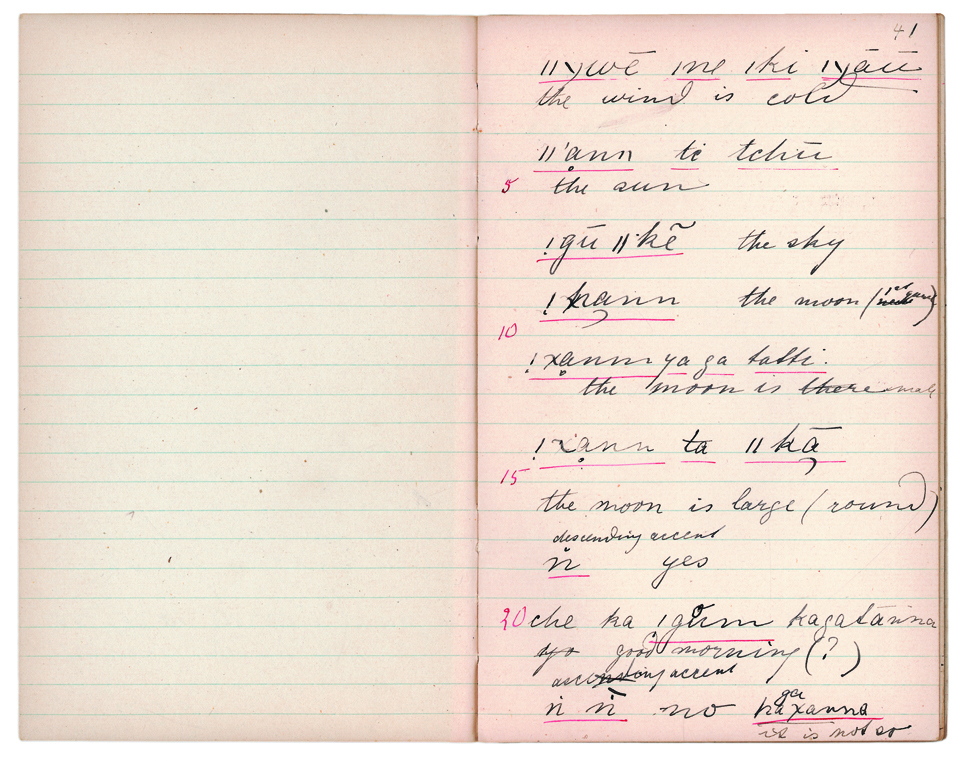 41
ǁγwē me iki ǁγāū
the wind is cold
ǁ'ann ti tchū
5 the sun
!gū ǁkẽ the sky
!kann the moon (1st quarter)
10
!xann ya ga tatti.
the moon is there small
!xann ta ǁkā
15
the moon is large (round)
descending accent
ǹ yes
20 che ka !gum kagatanna
good morning (?)
ascending accent
ṅ ṅ no kagaxanna
it is not so